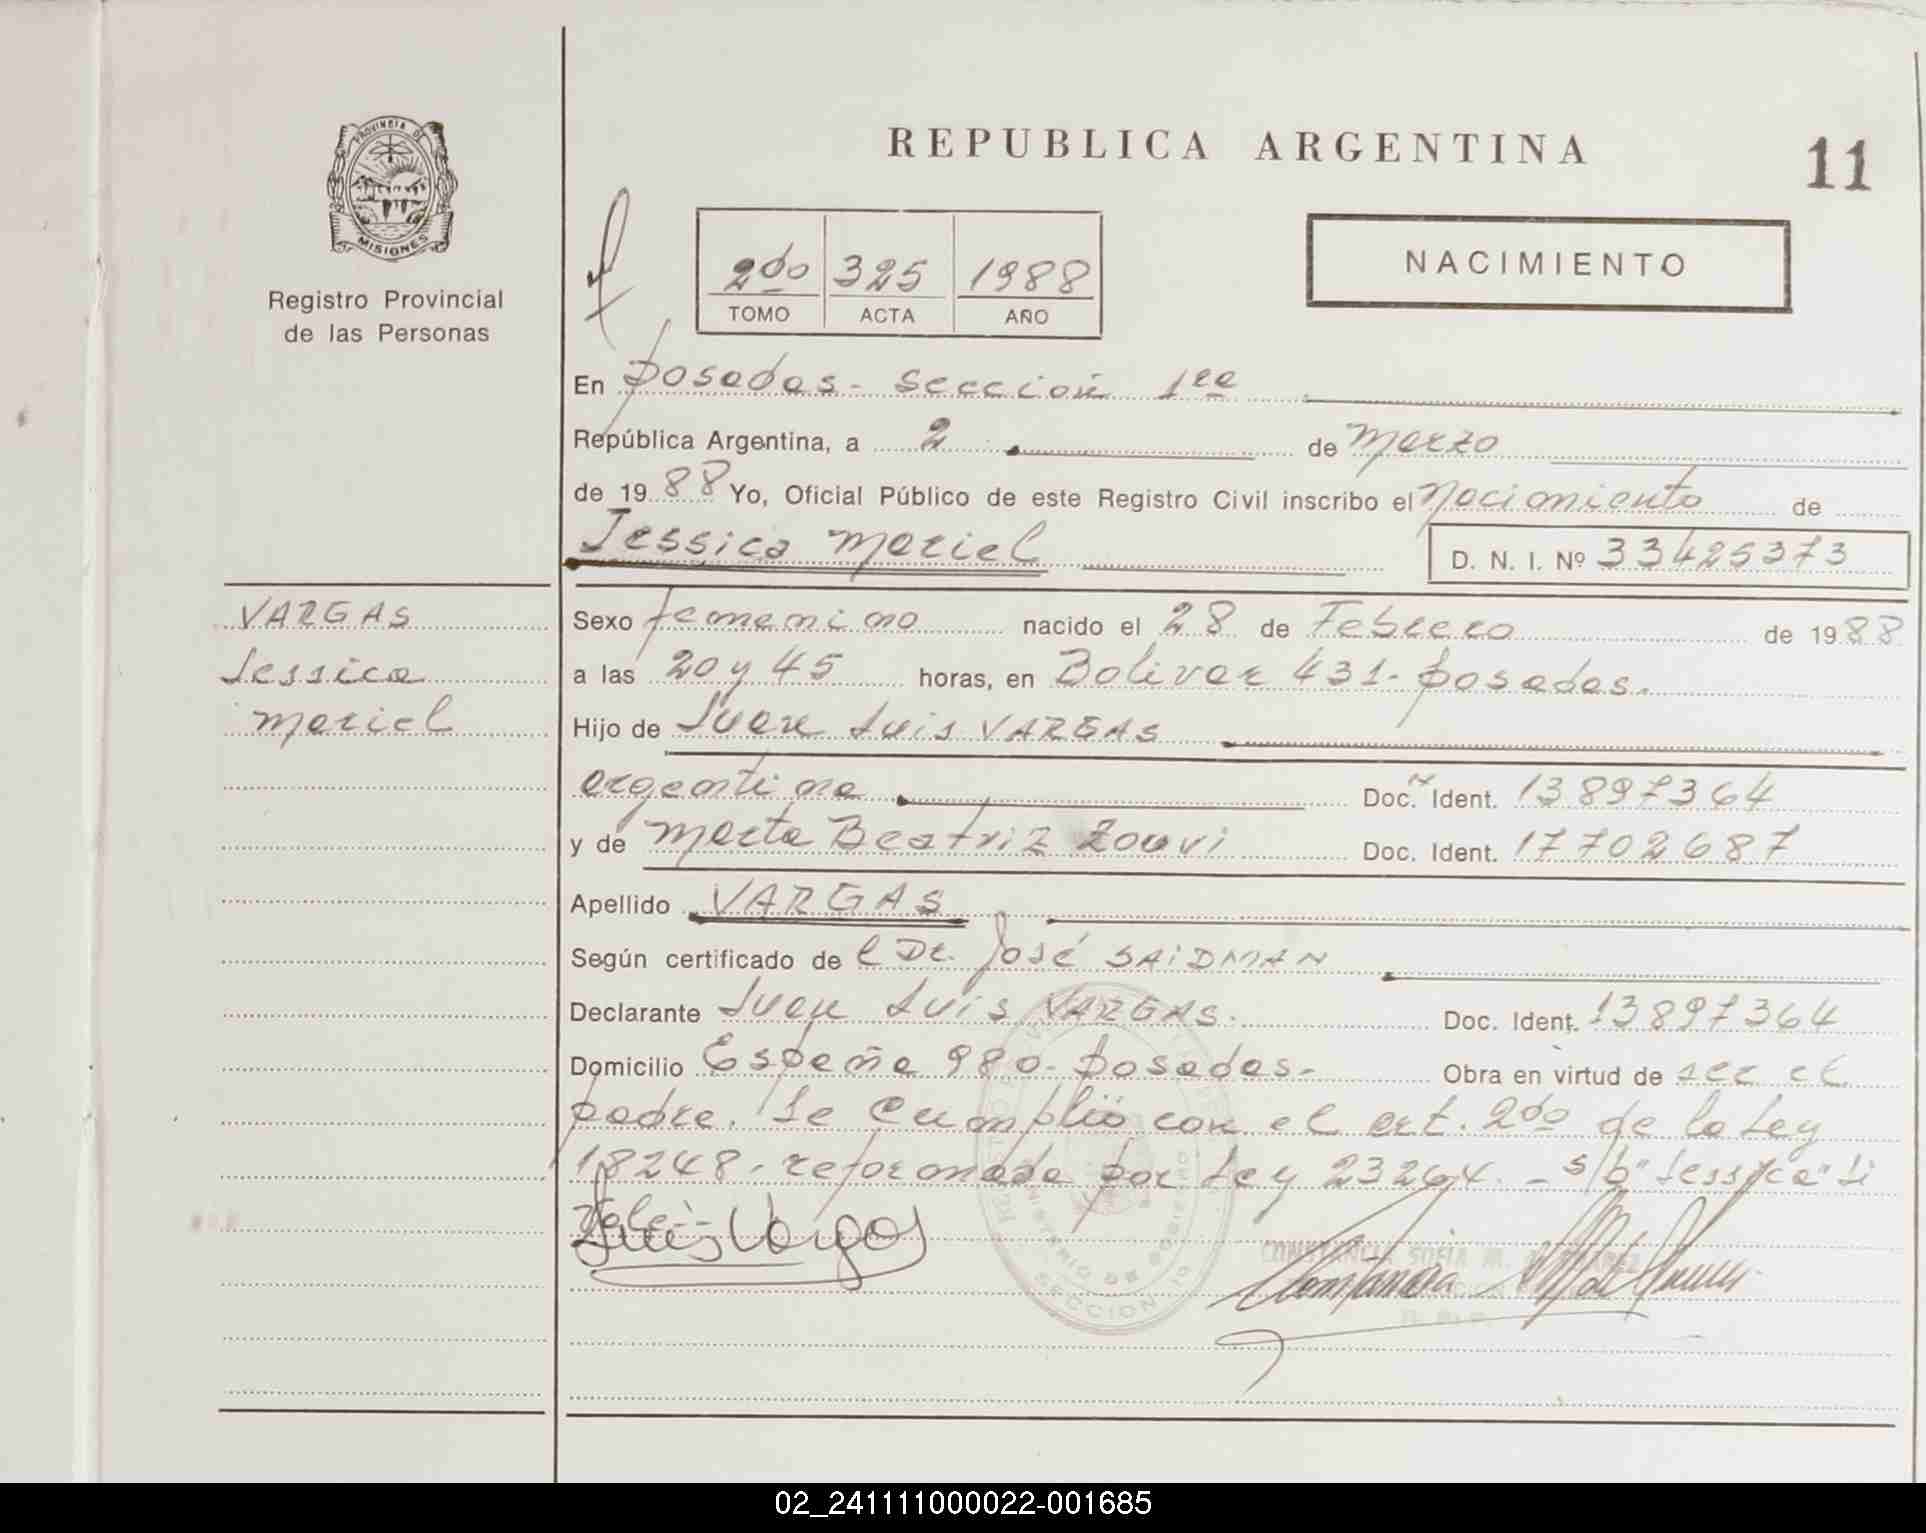 PROVINCIA DE
MISIONES
Registro Provincial
de las Personas
VARGAS
Jessica
Mariel
REPUBLICA ARGENTINA
11
2do 325 1988
TOMO ACTA AÑO
NACIMIENTO
En Posadas - Sección 1ra
República Argentina, a 2 de Marzo
de 1988 Yo, Oficial Público de este Registro Civil inscribo el Nacimiento de
Jessica Mariel D. N. I. Nº 33425373
Sexo femenino nacido el 28 de Febrero de 1988
a las 20 y 45 horas, en Bolivar 431 - Posadas.
Hijo de Juan Luis VARGAS
argentina Doc. Ident. 13897364
y de Marta Beatriz Zouvi Doc. Ident. 17702687
Apellido VARGAS
Según certificado de l Dr. José SAIDMAN
Declarante Juan Luis VARGAS. Doc. Ident. 13897364
Domicilio España 980 - Posadas - Obra en virtud de ser el
padre. Se cumplió con el art. 2do de la Ley
18248 - reformada por Ley 23264. - s/b "Jessica" Si
Vale. -
Luis Vargas
CONSTANCIA SOFIA M.
MINISTERIO DE GOBIERNO
SECCION
02_241111000022-001685